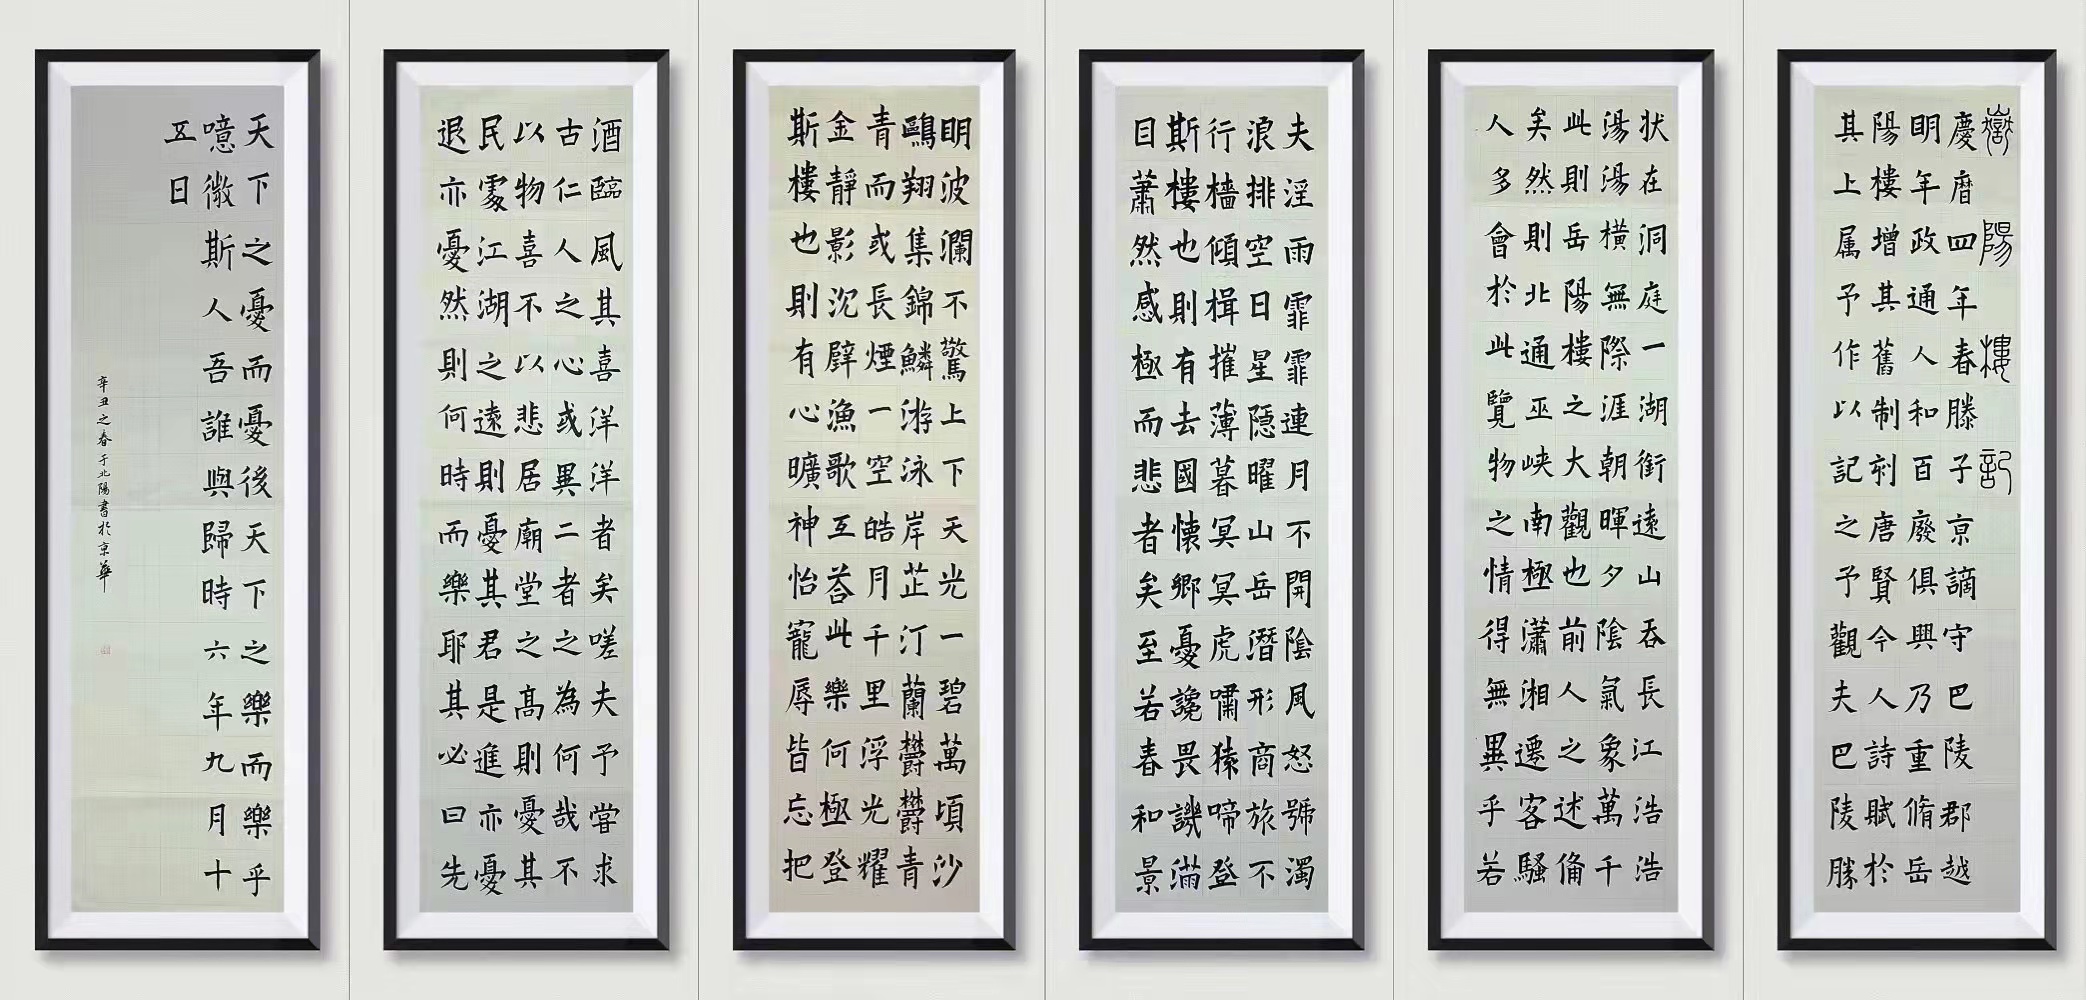 嶽陽樓記
慶曆四年春滕子京謫守巴陵郡越
明年政通人和百廢俱興乃重脩岳
陽樓增其舊制刻唐賢今人詩賦於
其上属予作以記之予觀夫巴陵勝
狀在洞庭一湖銜遠山吞長江浩浩
湯湯橫無際涯朝暉夕陰氣象萬千
此則岳陽樓之大觀也前人之述俻
矣然則北通巫峽南極瀟湘遷客騷
人多會於此覽物之情得無異乎若
夫淫雨霏霏連月不開陰風怒號濁
浪排空日星隱曜山岳潛形商旅不
行檣傾楫摧薄暮冥冥虎嘯猿啼登
斯樓也則有去國懷鄉憂讒畏譏滿
目蕭然感極而悲者矣至若春和景
明波瀾不驚上下天光一碧萬頃沙
鷗翔集錦鱗游泳岸芷汀蘭鬱鬱青
青而或長煙一空皓月千里浮光耀
金靜影沉璧漁歌互荅此樂何極登
斯樓也則有心曠神怡寵辱皆忘把
酒臨風其喜洋洋者矣嗟夫予嘗求
古仁人之心或異二者之為何哉不
以物喜不以悲居廟堂之高則憂其
民處江湖之遠則憂其君是進亦憂
退亦憂然則何時而樂耶其必曰先
天下之憂而憂後天下之樂而樂乎
噫微斯人吾誰與歸時六年九月十
五日
辛丑之春于北陽書於京華